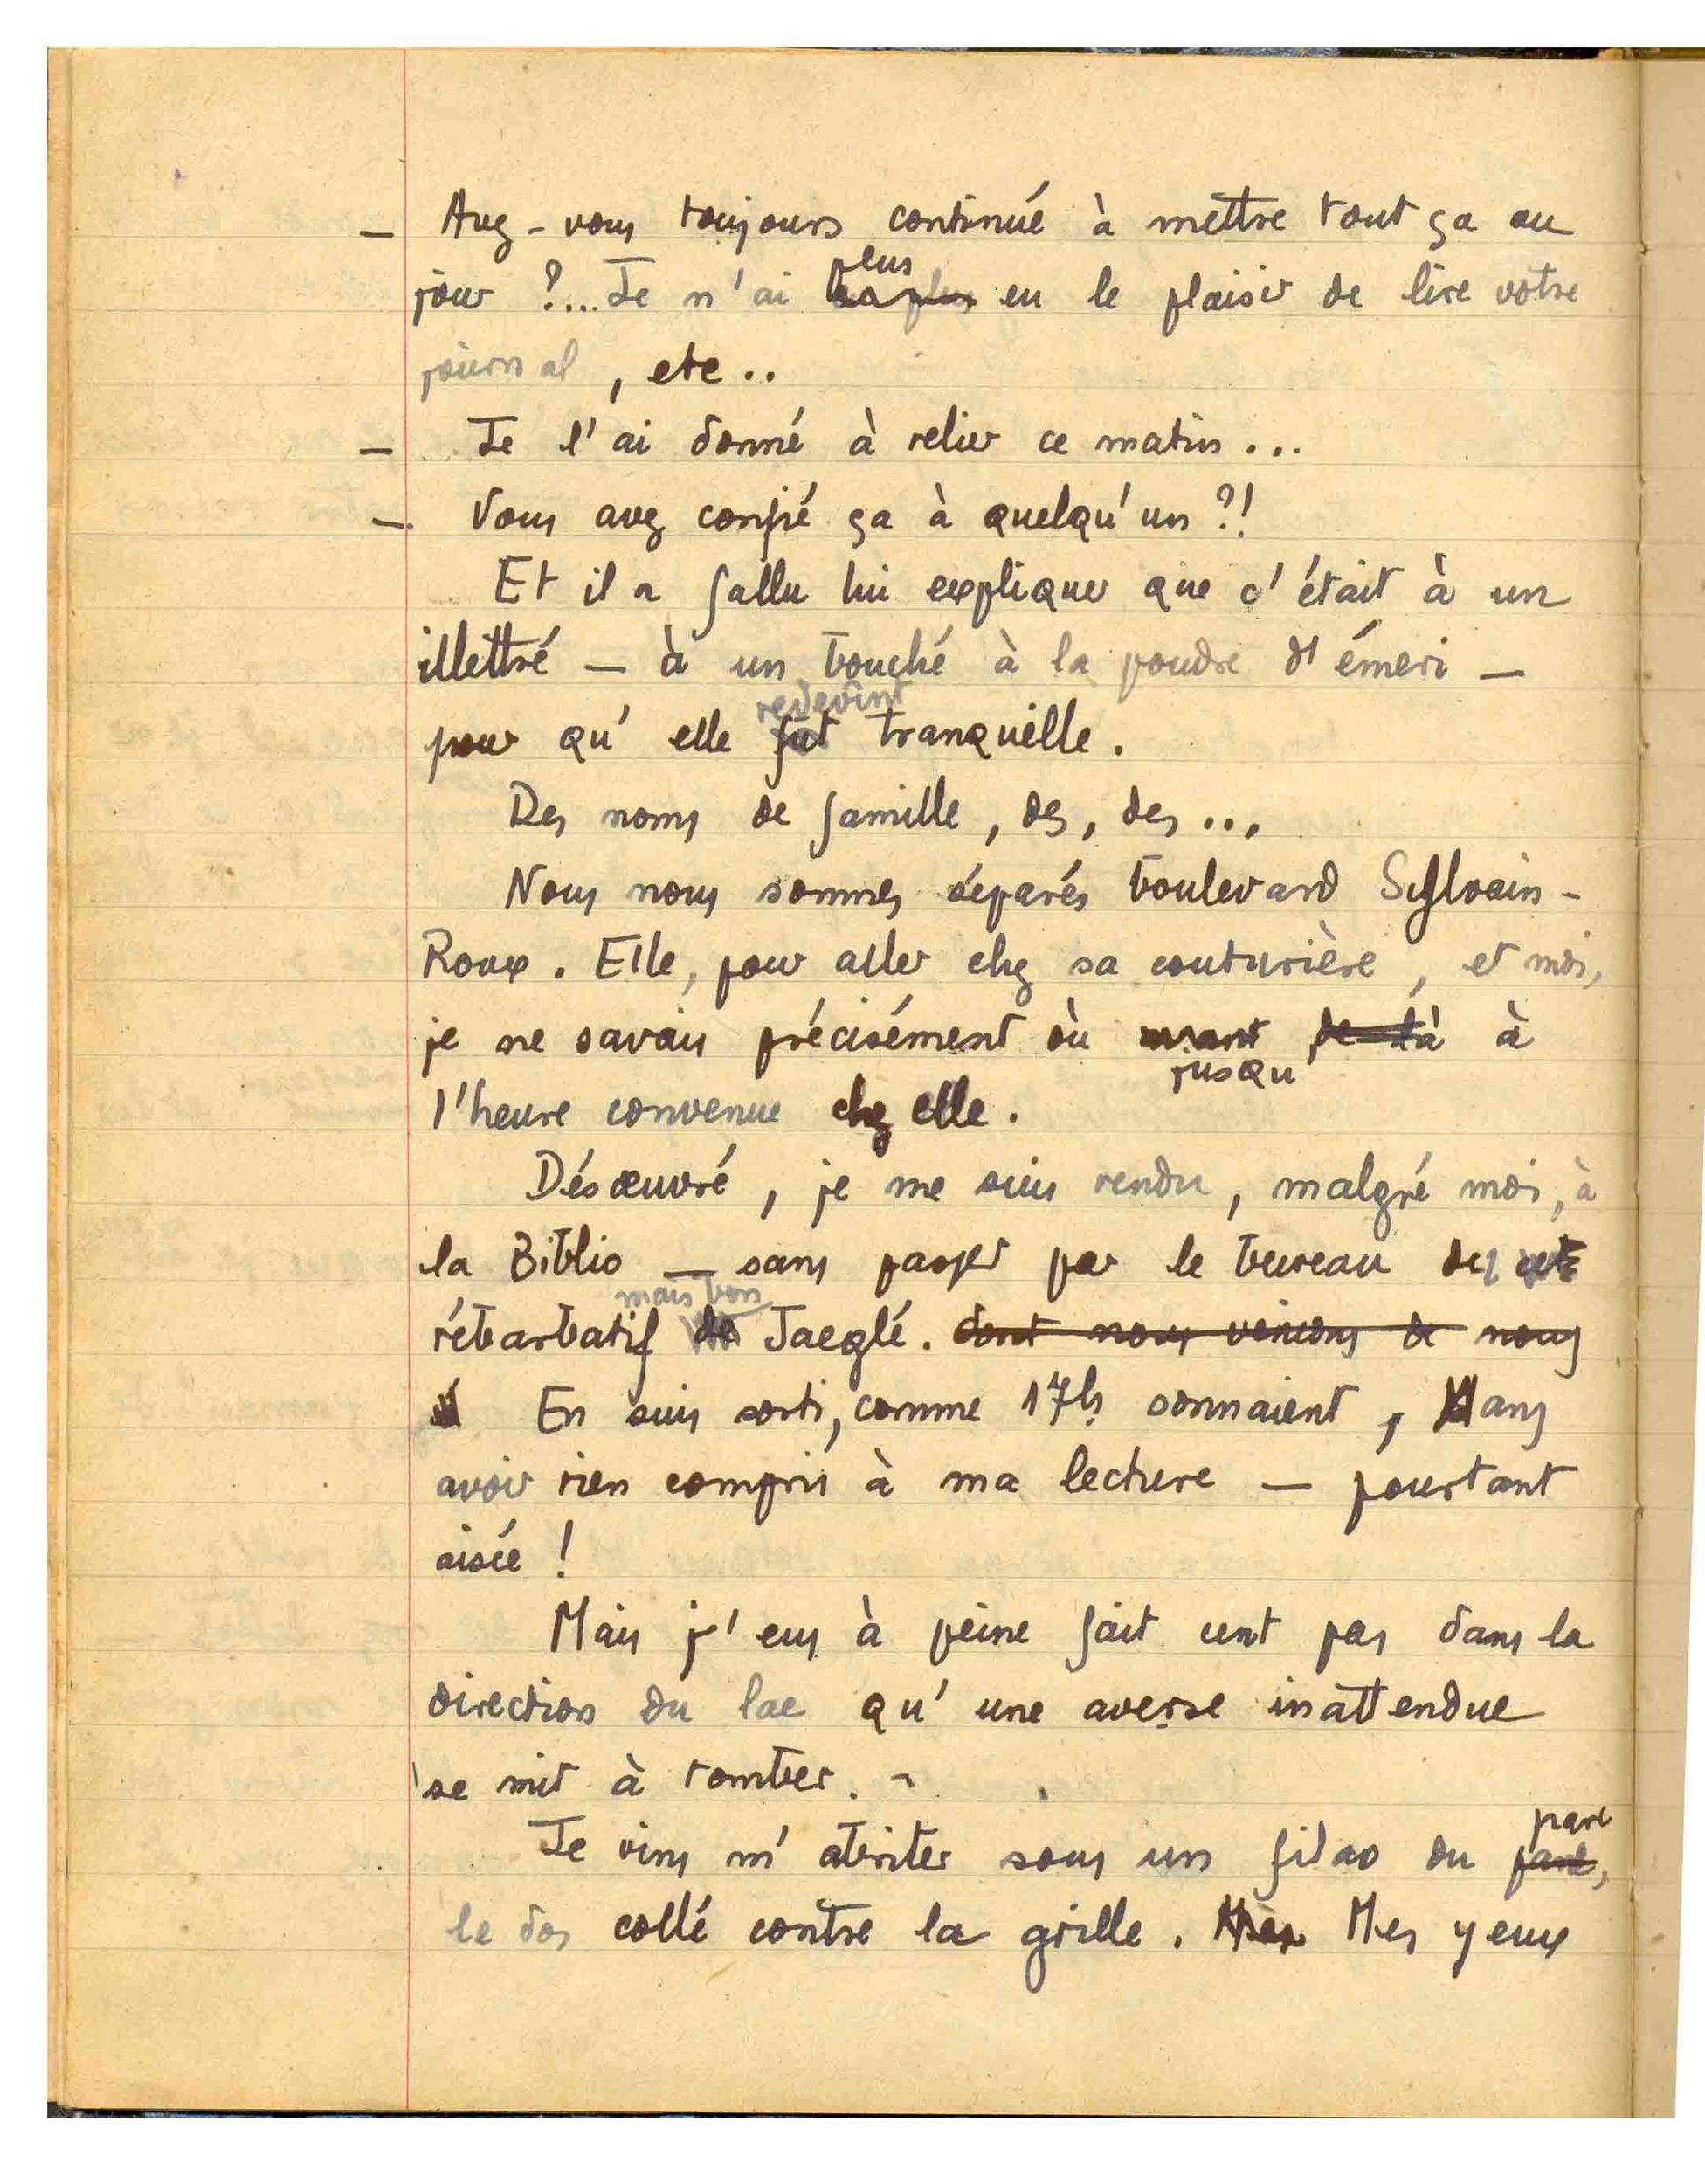 — Avez-vous toujours continué à mettre tout ça au
jour ?... Je n'ai plus eu le plaisir de lire votre
journal, etc..
— Je l'ai donné à relier ce matin...
— Vous avez confié ça à quelqu'un ?!
Et il a fallu lui expliquer que c'était à un
illettré — à un bouché à la poudre d'émeri —
redevînt
pour qu'elle fût tranquille.
Des noms de famille, des, des...
Nous nous sommes séparés boulevard Sylvain-
Roux. Elle, pour aller chez sa couturière, et moi,
je ne savais précisément où de là à
jusqu'
l'heure convenue chez elle.
Désœuvré, je me suis rendu, malgré moi, à
la Biblio — sans passer par le bureau du
mais bon
rébarbatif de Jaeglé. dont nous venions de nous
En suis sorti, comme 17h sonnaient, sans
avoir rien compris à ma lecture — pourtant
aisée !
Mais j'eus à peine fait cent pas dans la
direction du lac qu'une averse inattendue
se mit à tomber.
parc
Je vins m'abriter sous un filao du parc,
le dos collé contre la grille. Mes yeux